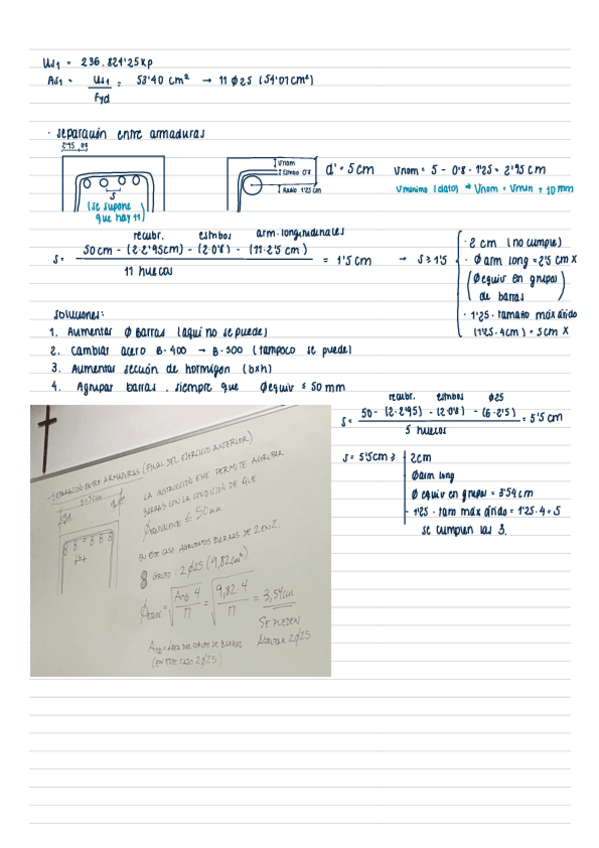 Us1 = 236.824'25 Kp
As1 = Us1 / Fyd = 53'40 cm² → 11 Ø25 (54'01 cm²)
· separación entre armaduras
(se supone que hay 11)
s
Vnom
Estribo 0'8
Radio 1'25 cm
d' = 5 cm
Vnom = 5 - 0'8 - 1'25 = 2'95 cm
Vmínimo (dato) → Vnom = Vmin + 10 mm
recubr. estribos arm. longitudinales
s = 50 cm - (2·2'95 cm) - (2·0'8) - (11·2'5 cm) / 11 huecos = 1'5 cm → s ≥ 1'5
· 2 cm (no cumple)
· Ø arm long = 2'5 cm X
(Ø equiv en grupos de barras)
· 1'25 · tamaño máx árido
(1'25 · 4 cm) = 5 cm X
Soluciones:
1. Aumentar Ø barras (aquí no se puede)
2. Cambiar acero B-400 → B-500 (tampoco se puede)
3. Aumentar sección de hormigón (bxh)
4. Agrupar barras, siempre que Øequiv ≤ 50 mm
recubr. estribos Ø25
s = 50 - (2·2'95) - (2·0'8) - (6·2'5) / 5 huecos = 5'5 cm
s = 5'5 cm ≥
2 cm
Ø arm long
Ø equiv en grupos = 3'54 cm
1'25 · tam máx árido = 1'25 · 4 = 5
se cumplen las 3.
- SEPARACIÓN ENTRE ARMADURAS (FINAL DEL EJERCICIO ANTERIOR)
LA INSTRUCCIÓN EHE PERMITE AGRUPAR
BARRAS CON LA CONDICIÓN DE QUE
ØEQUIVALENTE ≤ 50 mm
EN ESTE CASO AGRUPAMOS BARRAS DE 2 EN 2.
GRUPO: 2Ø25 (9,82 cm²)
ØEQUIV. = √(Ang · 4 / π) = √(9,82 · 4 / π) = 3,54 cm
SE PUEDEN
AGRUPAR 2Ø25
Ang = ÁREA DEL GRUPO DE BARRAS
(EN ESTE CASO 2Ø25)